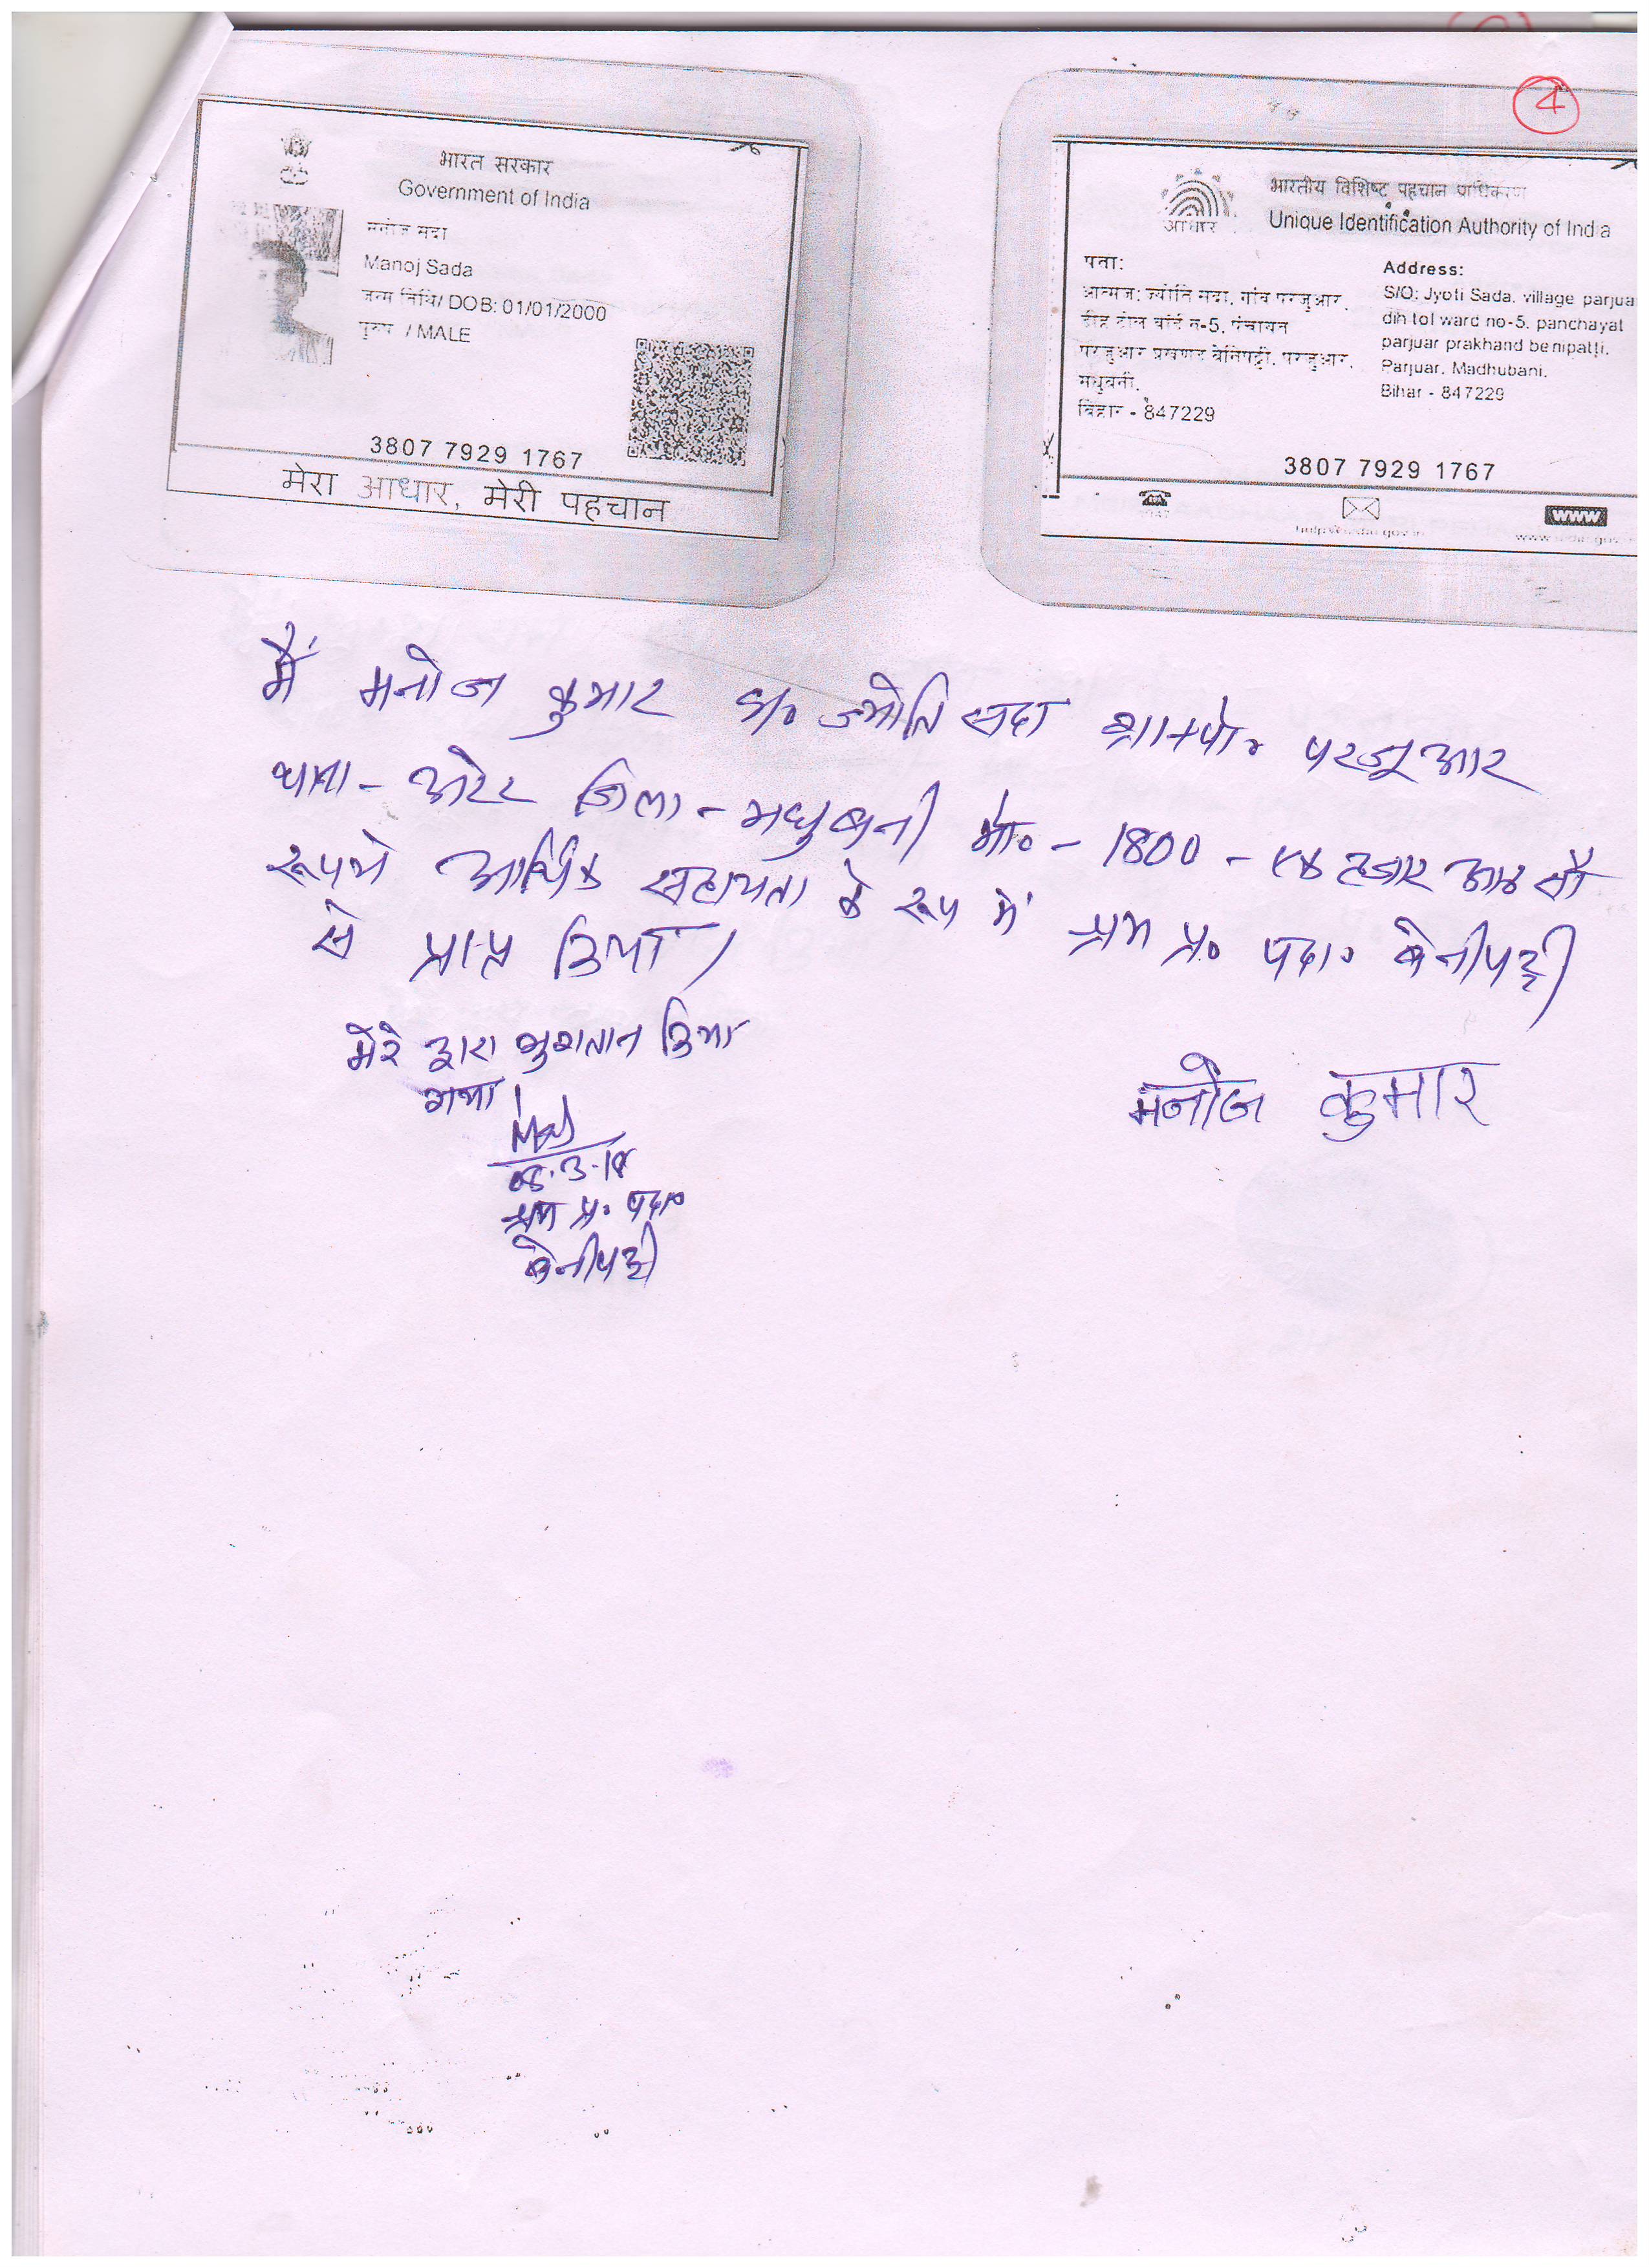 4
भारत सरकार
Government of India
मनोज सदा
Manoj Sada
जन्म तिथि/ DOB: 01/01/2000
पुरुष / MALE
3807 7929 1767
मेरा आधार, मेरी पहचान
आधार
भारतीय विशिष्ट पहचान प्राधिकरण
Unique Identification Authority of India
पता:
आत्मज: ज्योति सदा, गांव परजुआर,
डीह टोल वार्ड न-5, पंचायत
परजुआर प्रखण्ड बेनिपट्टी, परजुआर,
मधुबनी,
बिहार - 847229
Address:
S/O: Jyoti Sada, village parjua
dih tol ward no-5, panchayat
parjuar prakhand benipatti,
Parjuar, Madhubani,
Bihar - 847229
3807 7929 1767
1947
help@uidai.gov.in
www
मैं मनोज कुमार पि० ज्योति सदा ग्रा+पो० परजूआर
थाना - अरेर जिला - मधुबनी मो० - 1800 - एक हजार आठ सौ
रूपये आर्थिक सहायता के रूप में श्रम प्र० पदा० बेनीपट्टी
से प्राप्त किया।
मेरे द्वारा भुगतान किया
गया।
08.3.18
श्रम प्र० पदा०
बेनीपट्टी
मनोज कुमार